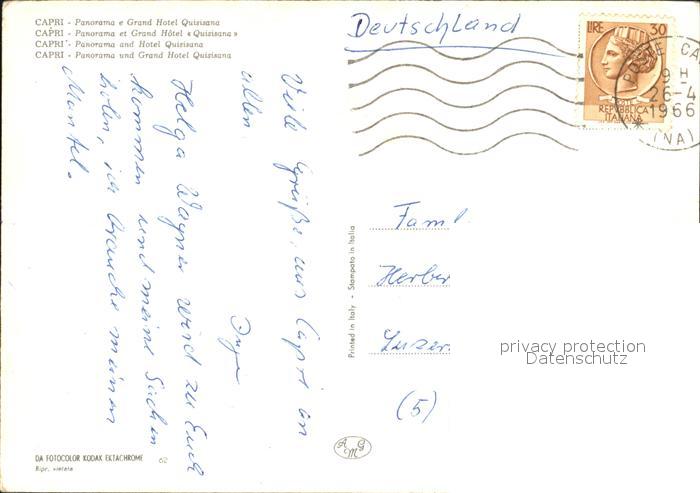 CAPRI - Panorama e Grand Hotel Quisisana
CAPRI - Panorama et Grand Hôtel « Quisisana »
CAPRI - Panorama and Grand Hotel Quisisana
CAPRI - Panorama und Grand Hotel Quisisana
Deutschland
LIRE 30
POSTE
REPUBBLICA
ITALIANA
POSTE CA
9 H
26-4
1966
(NA)
Viele Grüße, aus Capri an
allen
Inge
Helga Wagner wird zu Euch
kommen und meine Sachen
holen, ich brauche meinen
Mantel.
Printed in Italy - Stampato in Italia
Faml
Herber
Luzer
(5)
privacy protection
Datenschutz
DA FOTOCOLOR KODAK EKTACHROME 62
Ripr. vietata
A G M